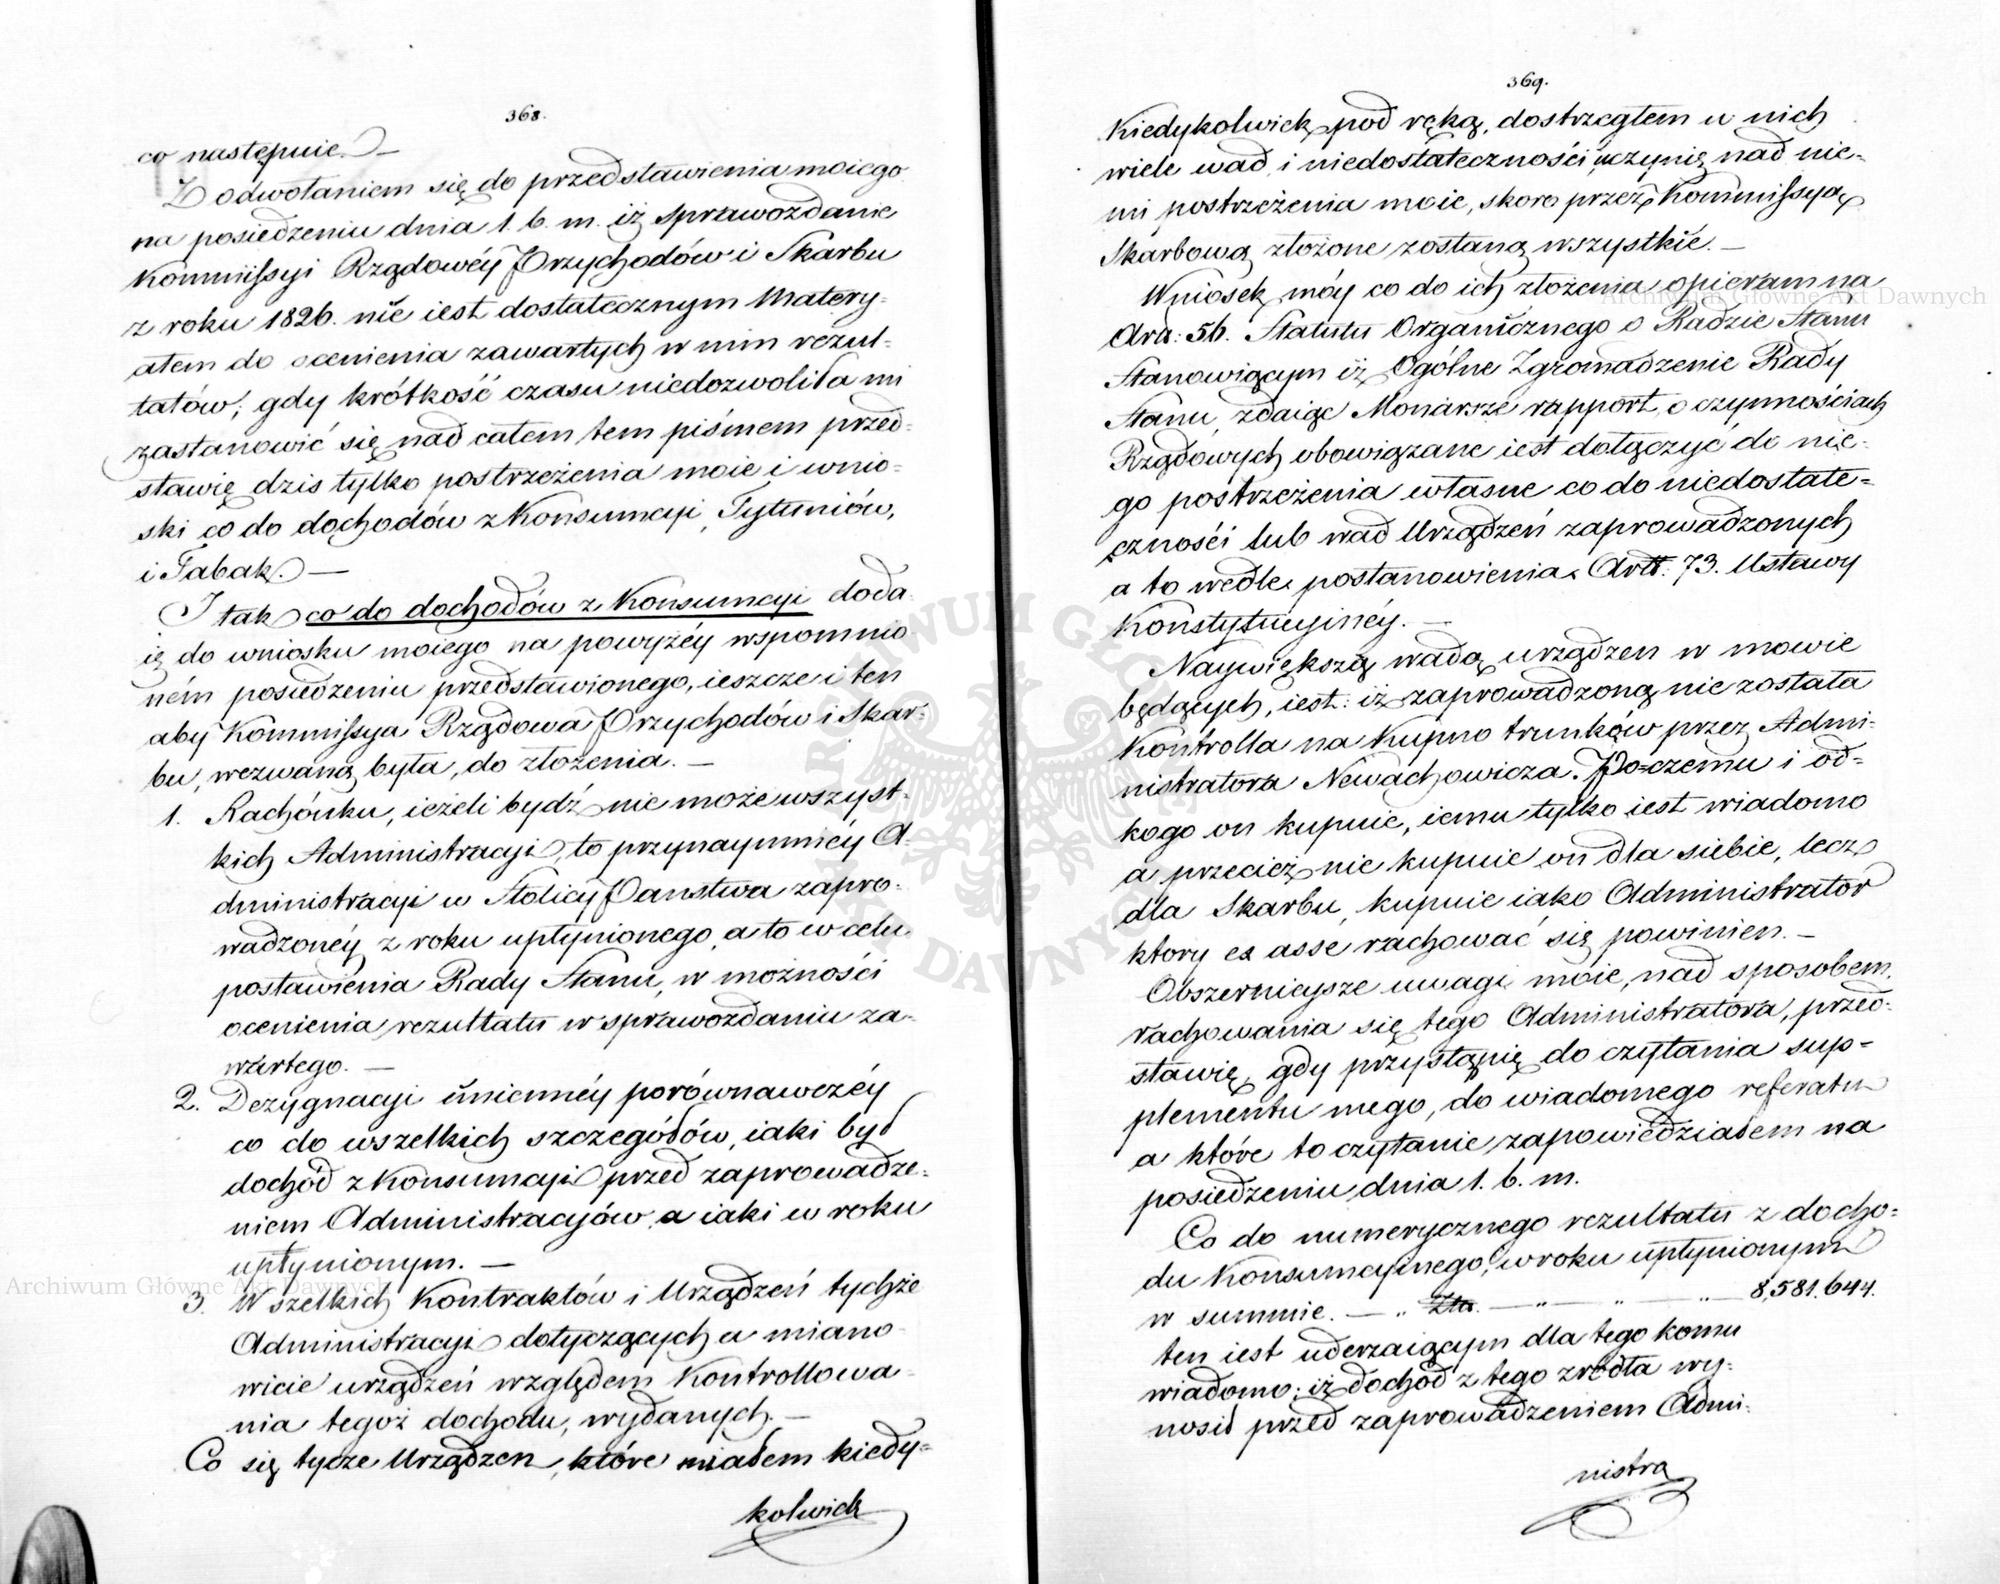 368.
co następuie. —
Z odwołaniem się do przedstawienia moiego
na posiedzeniu dnia 1. b. m. iż sprawozdanie
Kommissyi Rządowéy Przychodów i Skarbu
z roku 1826. nie iest dostatecznym Matery-
ałem do ocenienia zawartych w nim rezul-
tatów; gdy krótkość czasu niedozwoliła mi
zastanowić się nad całem tem piśmem przed-
stawię dzis tylko postrzeżenia moie i wnio-
ski co do dochodów z Konsumcyi, Tytuniów,
i Tabak. —
I tak co do dochodów z Konsumcyi doda
ię do wniosku moiego na powyżéy wspomnio
ném posiedzeniu przedstawionego, ieszcze i ten
aby Kommissya Rządowa Przychodów i Skar-
bu, wezwaną była, do złożenia. —
1. Rachónku, ieżeli bydź nie może wszyst-
kich Administracyi, to przynaymniéy A-
dministracyi w Stolicy Panstwa zapro-
wadzonéy z roku upłynionego, a to w celu
postawienia Rady Stanu, w możności
ocenienia rezultatu w sprawozdaniu za-
wartego. —
2. Dezygnacyi imiennéy porównawczéy
co do wszelkich szczegółów, iaki był
dochód z Konsumcyi przed zaprowadze-
niem Administracyów a iaki w roku
upłynionym. —
3. Wszelkich Kontraktów i Urządzeń tychże
Administracyi dotyczących a miano
wicie urządzeń względem Kontrollowa-
nia tegoż dochodu, wydanych. —
Co się tycze Urządzen, które miałem kiedy-
kolwiek
369.
Kiedykolwiek pod ręką, dostrzegłem w nich
wiele wad i niedostateczności uczynię nad nie-
mi postrzeżenia moie, skoro przez Kommissyą
Skarbową złożone zostaną wszystkie. —
Wniosek móy co do ich złożenia opieram na
Ard: 56. Statutu Organicznego o Radzie Stanu
Stanowiącym iż Ogólne Zgromadzenie Rady
Stanu, zdaiąc Monarsze rapport o czynnościach
Rządowych obowiązane iest dołączyć do nie-
go postrzeżenia własne co do niedostate-
czności lub wad Urządzeń zaprowadzonych
a to wedle postanowienia Artt: 73. Ustawy
Konstytucyinéy. —
Naywiększą wadą urządzen w mowie
będących, iest: iż zaprowadzoną nie została
Kontrolla na Kupno trunków przez Admi-
nistratora Newachowicza. Po czemu i od-
kogo on kupuie, iemu tylko iest wiadomo
a przecież nie kupuie on dla siebie, lecz
dla Skarbu, kupuie iako Administrator
ktory ex asse rachować się powinien. —
Obszernieysze uwagi moie, nad sposobem
rachowania się tego Administratora, przed-
stawię gdy przystąpię do czytania sup-
plementu mego, do wiadomego referatu
a które to czytanie zapowiedziałem na
posiedzeniu dnia 1. b. m.
Co do numerycznego rezultatu z docho-
du Konsumcyinego, w roku upłynionym
w summie. — „ Złtt. — „ — „ — „ — 8,581.644.
ten iest uderzaiącym dla tego komu
wiadomo; iż dochód z tego zrodła wy-
nosił przed zaprowadzeniem Admi-
nistra
Archiwum Główne Akt Dawnych
Archiwum Główne Akt Dawnych
ARCHIWUM GŁÓWNE AKT DAWNYCH